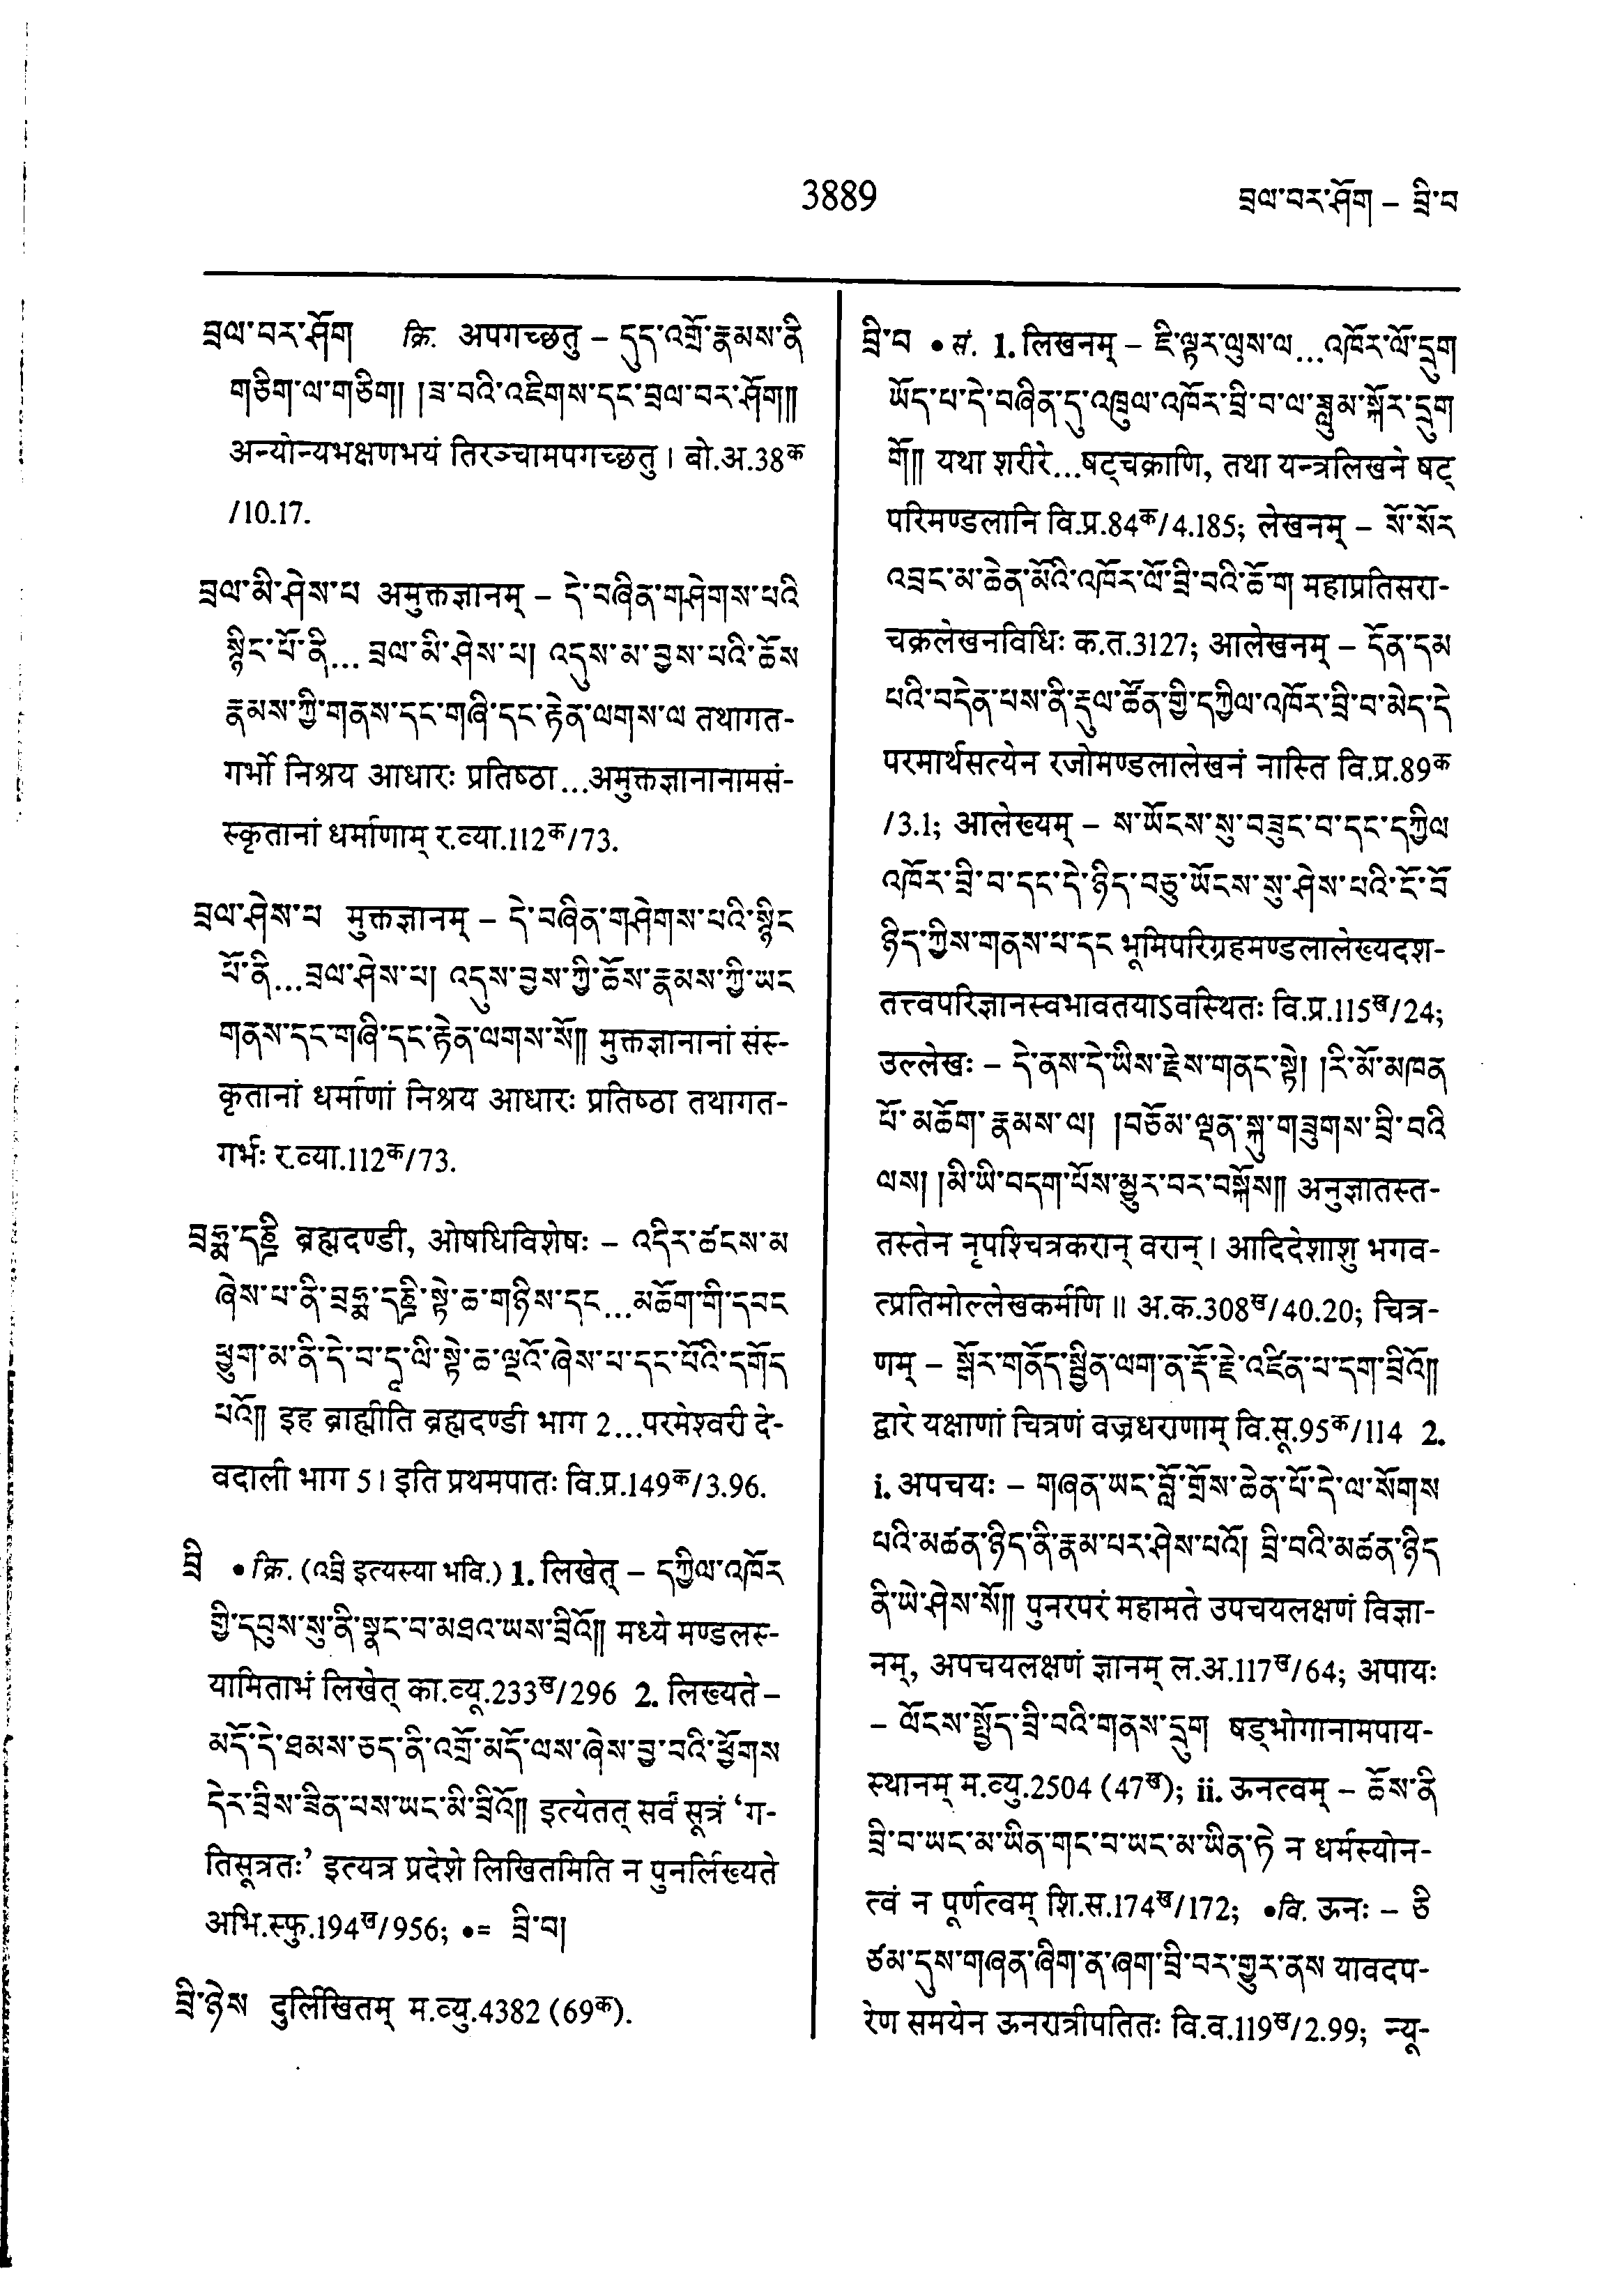 3889
བྲལ་བར་ཤོག – བྲི་བ
བྲལ་བར་ཤོག क्रि. अपगच्छतु – དུད་འགྲོ་རྣམས་ནི
གཅིག་ལ་གཅིག། །ཟ་བའི་འཇིགས་དང་བྲལ་བར་ཤོག།།
अन्योन्यभक्षणभयं तिरञ्चामपगच्छतु । बो.अ.38क
/10.17.
བྲལ་མི་ཤེས་པ अमुक्तज्ञानम् – དེ་བཞིན་གཤེགས་པའི
སྙིང་པོ་ནི... བྲལ་མི་ཤེས་པ། འདུས་མ་བྱས་པའི་ཆོས
རྣམས་ཀྱི་གནས་དང་གཞི་དང་རྟེན་ལགས་ལ तथागत-
गर्भो निश्रय आधारः प्रतिष्ठा...अमुक्तज्ञानानामसं-
स्कृतानां धर्माणाम् र.व्या.112क/73.
བྲལ་ཤེས་པ मुक्तज्ञानम् – དེ་བཞིན་གཤེགས་པའི་སྙིང
པོ་ནི...བྲལ་ཤེས་པ། འདུས་བྱས་ཀྱི་ཆོས་རྣམས་ཀྱི་ཡང
གནས་དང་གཞི་དང་རྟེན་ལགས་སོ།། मुक्तज्ञानानां संस्-
कृतानां धर्माणां निश्रय आधारः प्रतिष्ठा तथागत-
गर्भः र.व्या.112क/73.
བྲཧྨ་དཎྜི ब्रह्मदण्डी, ओषधिविशेषः – འདིར་ཚངས་མ
ཞེས་པ་ནི་བྲཧྨ་དཎྜི་སྟེ་ཆ་གཉིས་དང...མཆོག་གི་དབང
ཕྱུག་མ་ནི་དེ་བ་དཱ་ལི་སྟེ་ཆ་ལྔའོ་ཞེས་པ་དང་པོའི་དགོད
པའོ།། इह ब्राह्मीति ब्रह्मदण्डी भाग 2...परमेश्वरी दे-
वदाली भाग 5। इति प्रथमपातः वि.प्र.149क/3.96.
བྲི • क्रि. (འབྲི इत्यस्या भवि.) 1. लिखेत् – དཀྱིལ་འཁོར
གྱི་དབུས་སུ་ནི་སྣང་བ་མཐའ་ཡས་བྲིའོ།། मध्ये मण्डलस्-
यामिताभं लिखेत् का.व्यू.233ख/296 2. लिख्यते –
མདོ་དེ་ཐམས་ཅད་ནི་འགྲོ་མདོ་ལས་ཞེས་བྱ་བའི་ཕྱོགས
དེར་བྲིས་ཟིན་པས་ཡང་མི་བྲིའོ།། इत्येतत् सर्वं सूत्रं ‘ग-
तिसूत्रतः’ इत्यत्र प्रदेशे लिखितमिति न पुनर्लिख्यते
अभि.स्फु.194ख/956; •= བྲི་བ།
བྲི་ཉེས दुर्लिखितम् म.व्यु.4382 (69क).
བྲི་བ • सं. 1. लिखनम् – ཇི་ལྟར་ལུས་ལ...འཁོར་ལོ་དྲུག
ཡོད་པ་དེ་བཞིན་དུ་འཁྲུལ་འཁོར་བྲི་བ་ལ་ཟླུམ་སྐོར་དྲུག
གོ།། यथा शरीरे...षट्चक्राणि, तथा यन्त्रलिखने षट्
परिमण्डलानि वि.प्र.84क/4.185; लेखनम् – སོ་སོར
འབྲང་མ་ཆེན་མོའི་འཁོར་ལོ་བྲི་བའི་ཆོ་ག महाप्रतिसरा-
चक्रलेखनविधिः क.त.3127; आलेखनम् – དོན་དམ
པའི་བདེན་པས་ནི་རྡུལ་ཚོན་གྱི་དཀྱིལ་འཁོར་བྲི་བ་མེད་དེ
परमार्थसत्येन रजोमण्डलालेखनं नास्ति वि.प्र.89क
/3.1; आलेख्यम् – ས་ཡོངས་སུ་བཟུང་བ་དང་དཀྱིལ
འཁོར་བྲི་བ་དང་དེ་ཉིད་བཅུ་ཡོངས་སུ་ཤེས་པའི་ངོ་བོ
ཉིད་ཀྱིས་གནས་པ་དང भूमिपरिग्रहमण्डलालेख्यदश-
तत्त्वपरिज्ञानस्वभावतयाऽवस्थितः वि.प्र.115ख/24;
उल्लेखः – དེ་ནས་དེ་ཡིས་རྗེས་གནང་སྟེ། །རི་མོ་མཁན
པོ་མཆོག་རྣམས་ལ། །བཅོམ་ལྡན་སྐུ་གཟུགས་བྲི་བའི
ལས། །མི་ཡི་བདག་པོས་མྱུར་བར་བསྐོས།། अनुज्ञातस्त-
तस्तेन नृपश्चित्रकरान् वरान् । आदिदेशाशु भगव-
त्प्रतिमोल्लेखकर्मणि ॥ अ.क.308ख/40.20; चित्र-
णम् – སྒོར་གནོད་སྦྱིན་ལག་ན་རྡོ་རྗེ་འཛིན་པ་དག་བྲིའོ།།
द्वारे यक्षाणां चित्रणं वज्रधराणाम् वि.सू.95क/114 2.
i. अपचयः – གཞན་ཡང་བློ་གྲོས་ཆེན་པོ་དེ་ལ་སོགས
པའི་མཚན་ཉིད་ནི་རྣམ་པར་ཤེས་པའོ། བྲི་བའི་མཚན་ཉིད
ནི་ཡེ་ཤེས་སོ།། पुनरपरं महामते उपचयलक्षणं विज्ञा-
नम्, अपचयलक्षणं ज्ञानम् ल.अ.117ख/64; अपायः
– ལོངས་སྤྱོད་བྲི་བའི་གནས་དྲུག षड्भोगानामपाय-
स्थानम् म.व्यु.2504 (47ख); ii. ऊनत्वम् – ཆོས་ནི
བྲི་བ་ཡང་མ་ཡིན་གང་བ་ཡང་མ་ཡིན་ཏེ न धर्मस्योन-
त्वं न पूर्णत्वम् शि.स.174ख/172; •वि. ऊनः – ཅི
ཙམ་དུས་གཞན་ཞིག་ན་ཞག་བྲི་བར་གྱུར་ནས यावदप-
रेण समयेन ऊनरात्रीपतितः वि.व.119ख/2.99; न्यू-